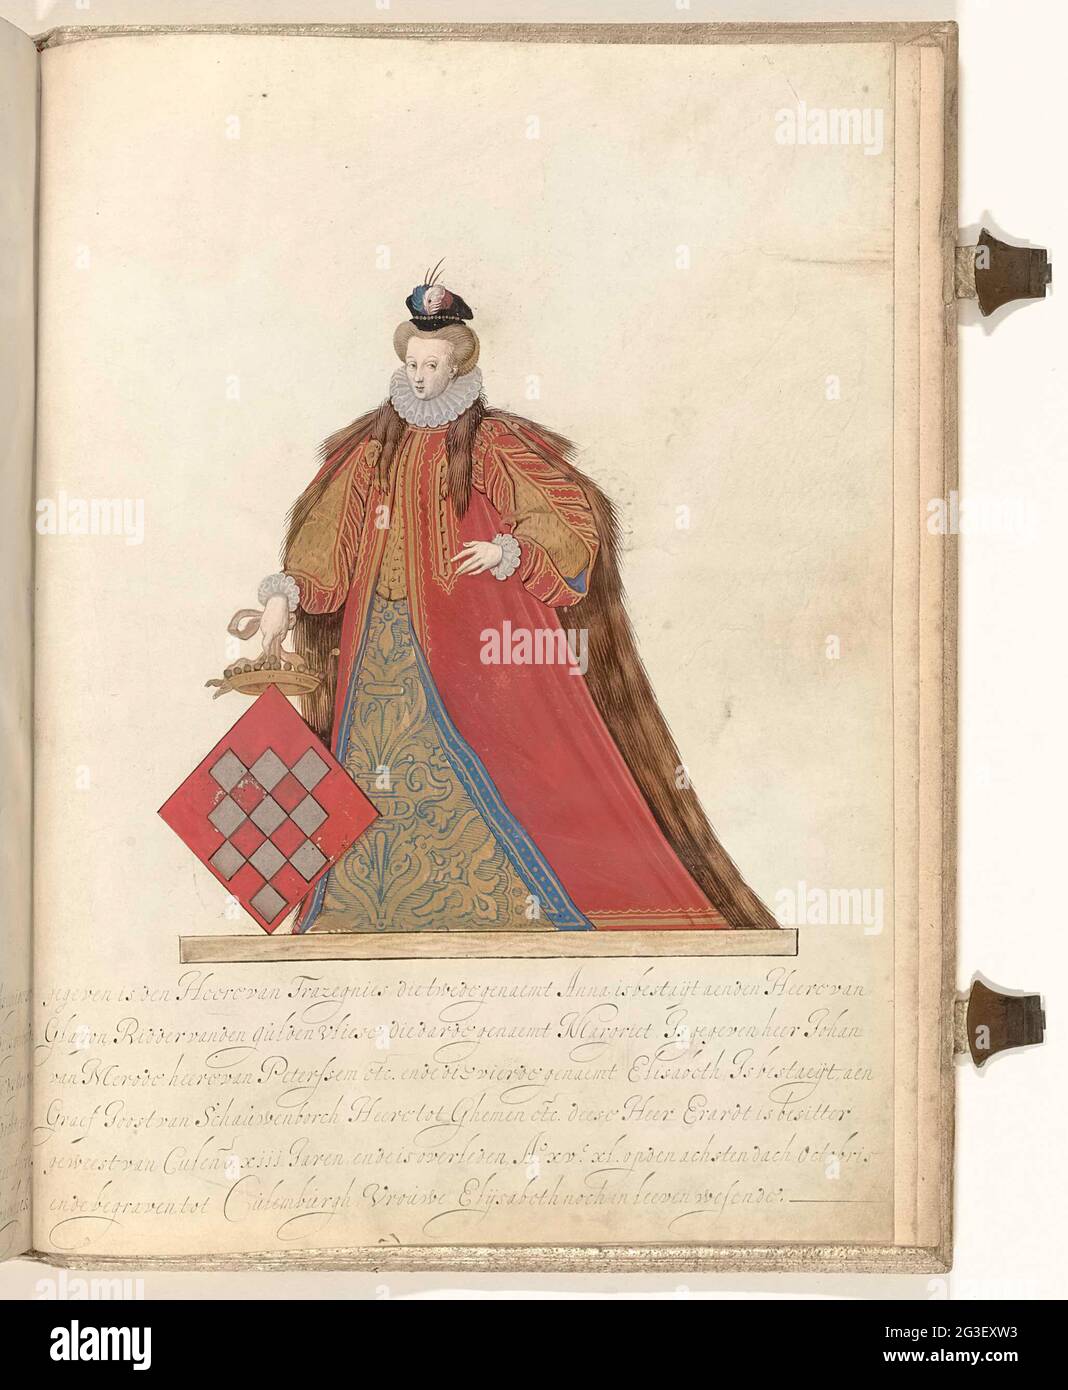 gegeven is den Heere van Trazegnies die twede genaemt Anna is bestayt aen den Heere van
Glaÿon, Ridder vanden gulden vliese, die darde genaemt Margriet Is gegeven heer Johan
van Merode heere van Peterssem etc. ende die vierde genaemt Elisabeth Is bestaeÿt, aen
Graef Joost van Schauwenborch Heere tot Ghemen etc. deese Heer Erardt is besitter
geweest van Culenb. xiii Jaren, ende is overleden, Aº xvc. xl. op den achsten dach Octobris
ende begraven tot Culemburgh Vrouwe Elÿsabeth noch in leeven wesende.
alamy
Image ID: 2G3EXW3
www.alamy.com